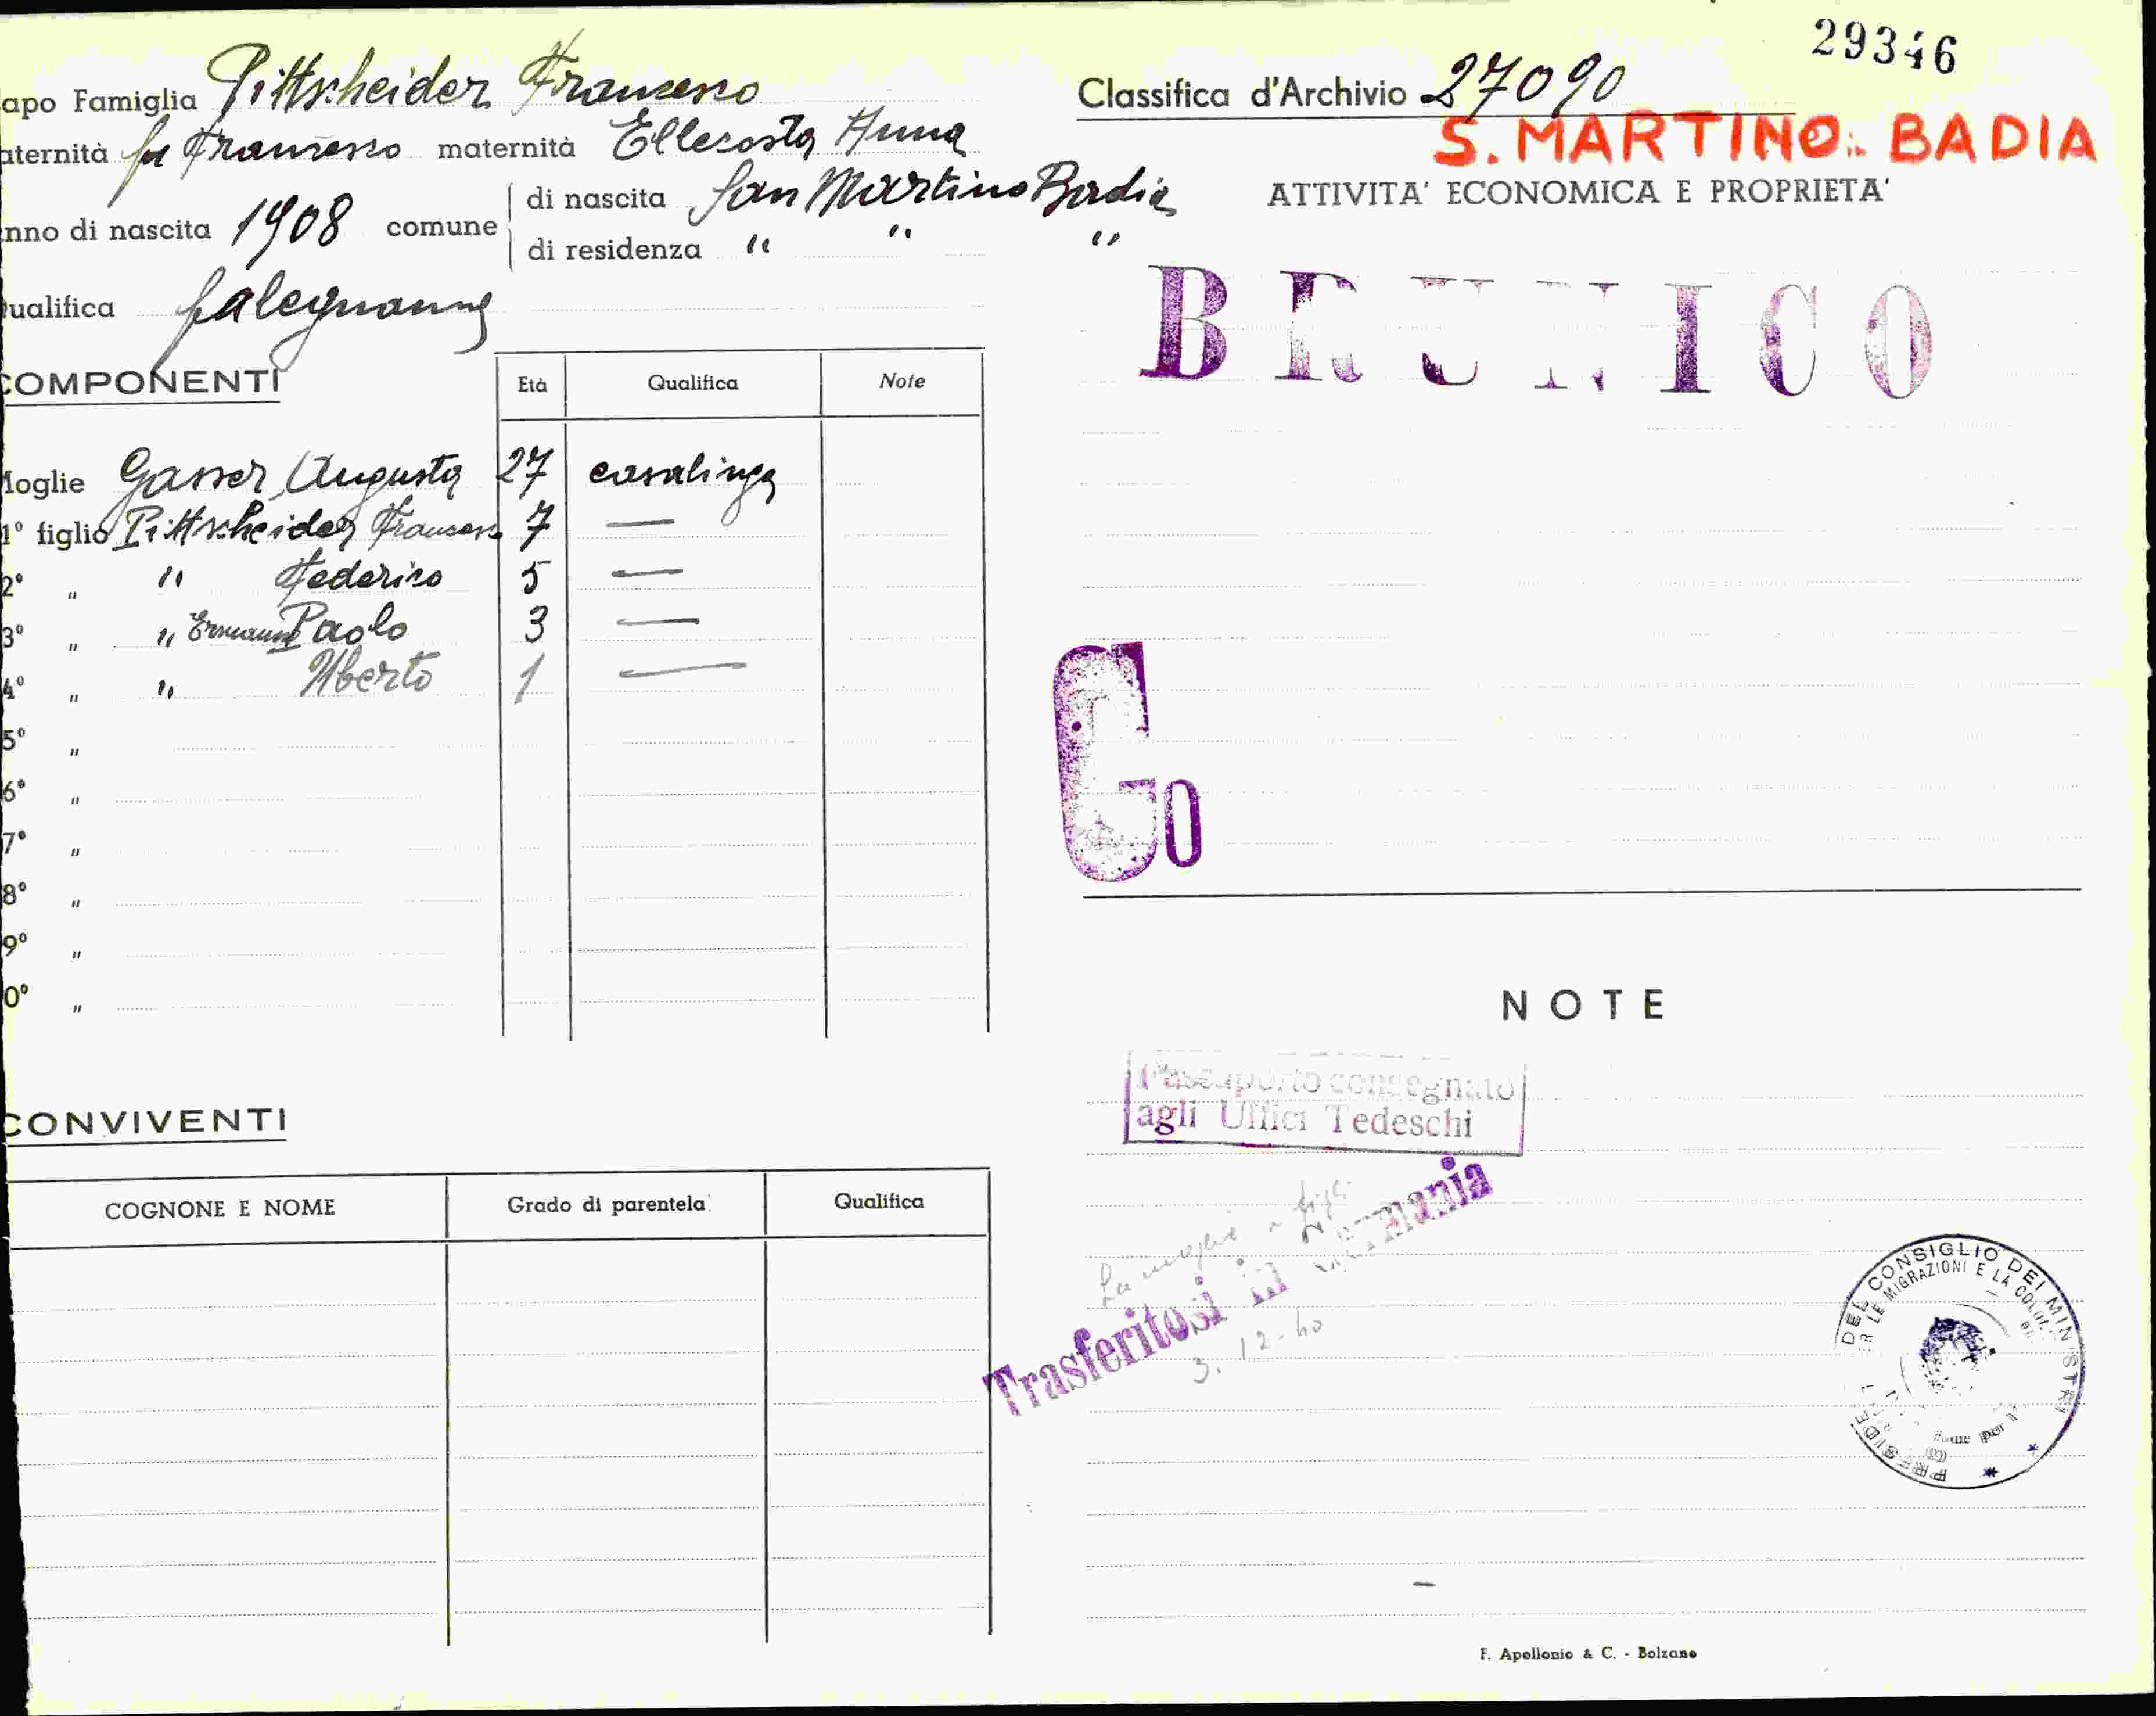 apo Famiglia Pittscheider Francesco
aternità fu Francesco maternità Ellecosta Anna
nno di nascita 1908 comune di nascita San Martino Badia
di residenza " " "
ualifica falegname
COMPONENTI Età Qualifica Note
Moglie Gasser Augusta 27 casalinga
1° figlio Pittscheider Francesco 7 —
2° " " Federico 5 —
3° " " Ermanno Paolo 3 —
4° " " Uberto 1 —
5° "
6° "
7° "
8° "
9° "
0° "
CONVIVENTI
COGNONE E NOME Grado di parentela Qualifica
29346
Classifica d'Archivio 27090
S. MARTINO: BADIA
ATTIVITA' ECONOMICA E PROPRIETA'
BRUNICO
Go
NOTE
Passaporto consegnato
agli Uffici Tedeschi
La moglie e figli
Trasferitosi in Germania
3.12-40
PRESIDE DEL CONSIGLIO DEI MINISTRI
LE MIGRAZIONI E LA COLO
per
F. Apollonio & C. - Bolzano